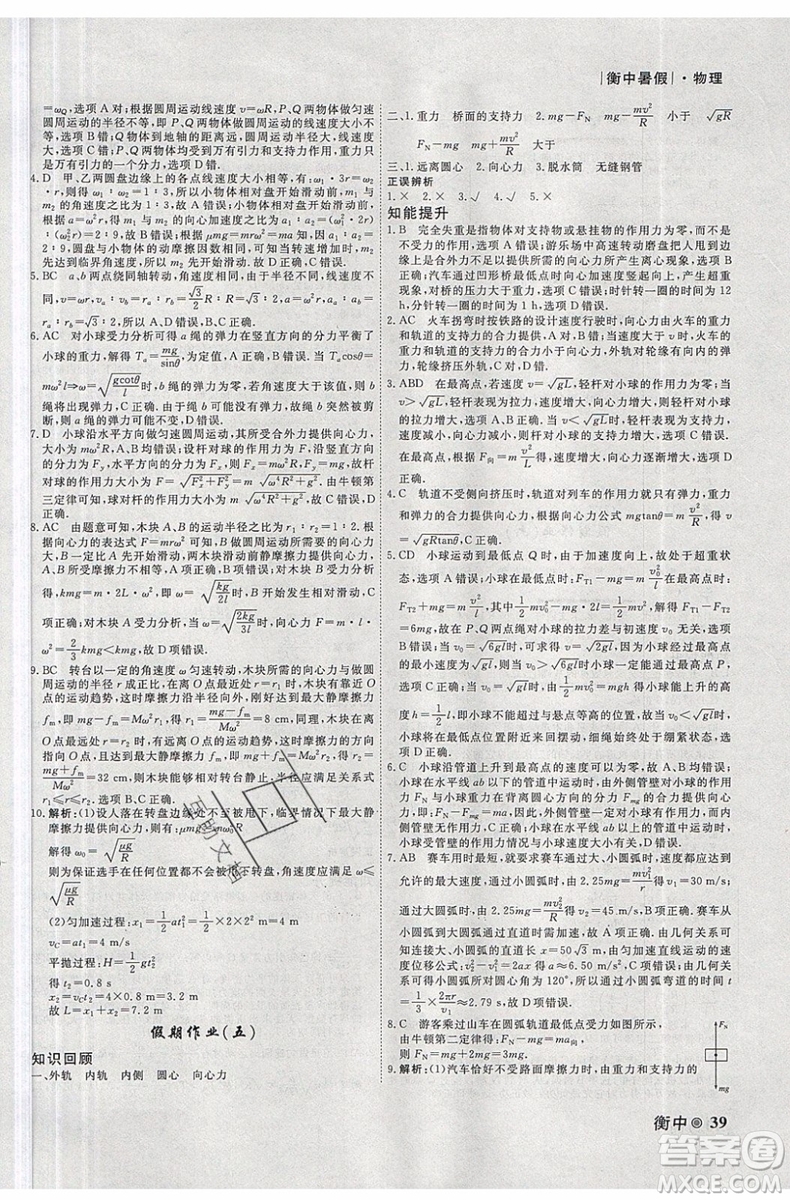 |衡中暑假|·物理
=ω_Q，选项 A 对；根据圆周运动线速度 v=ωR，P、Q 两物体做匀速
圆周运动的半径不等，即 P、Q 两物体做圆周运动的线速度大小不
等，选项 B 错；Q 物体到地轴的距离远，圆周运动半径大，线速度大，
选项 C 错；P、Q 两物体均受万有引力和支持力作用，重力只是万有
引力的一个分力，选项 D 错。
4.D 甲、乙两圆盘边缘上的各点线速度大小相等，有：ω₁·3r=ω₂·
2r，则得 ω₁：ω₂=2：3，所以小物体相对盘开始滑动前，m₁ 与
m₂ 的角速度之比为 2：3，故 A、B 错误；小物体相对盘开始滑动前，
根据 a=ω²r 得：m₁ 与 m₂ 的向心加速度之比为 a₁：a₂=(ω₁²·2r)：(ω₂²r)=
2：9，故 C 错误；根据 μmg=mrω²=ma 知，因 a₁：a₂=
2：9，圆盘与小物体的动摩擦因数相同，当转速增加时，m₂ 先达
到临界角速度，所以 m₂ 先开始滑动。故 D 正确。
5.BC a、b 两点绕同轴转动，角速度相等，B 正确；由于半径不同，线
速度不相等，v=ωr，v_a：v_b=r_a：r_b=√3/2 R：R=√3：2，a_a：a_b=
r_a：r_b=√3：2；所以 A、D 错误，B、C 正确。
6.AC 对小球受力分析可得 a 绳的弹力在竖直方向的分力平衡了
小球的重力，解得 T_a=mg/sinθ，为定值，A 正确，B 错误。当 T_a cosθ=
mω²l⇒ω=√(gcotθ/l) 时，b 绳的弹力为零，若角速度大于该值，则 b 绳
将出现弹力，C 正确。由于绳 b 可能没有弹力，故绳 b 突然被剪断，
a 绳的弹力可能不变，D 错误。
7.D 小球沿水平方向做匀速圆周运动，其所受合外力提供向心力，
大小为 mω²R，方向水平向左，故选项 B、C 错误；设杆对球的作用力
竖直分力为 F_y，水平方向的分力为 F_x，则有：F_x=mω²R，F_y=mg，故杆
对球的作用力大小为 F=√(F_x²+F_y²)=m√(ω⁴R²+g²)，由牛顿第
三定律可知，球对杆的作用力大小为 m√(ω⁴R²+g²)，故选项 A 错
误，D 正确。
8.AC 由题意可知，木块 A、B 的运动半径之比为 r₁：r₂=1：2，根
据向心力的表达式 F=mω²r 可知，转动过程中所需要的向心力
B 一定比 A 大，即两木块滑动前静摩擦力大小不相等，所以 B 错
误；B 先达到最大静摩擦力，即 B 一定比 A 先开始滑动，所以 A 正
确；B 发生相对滑动时，有 kmg=m·2L·ω²，得 ω=√(kg/2L)，所以 C 正
确，A 开始滑动时，得，kmg=m·L·ω²，得 ω=√(kg/L)，当 ω=√(2kg/3L)
时，木块 A 没有滑动，A 木块所需要的向心力 F=m·l·ω²，大小
为 2/3 kmg＜kmg=f_m，故 D 项错误。
9.BC 转台以一定的角速度 ω 匀速转动，木块所需的向心力与做圆
周运动的半径 r 成正比，在离 O 点最近处 r=r₁ 时，木块有向 O 点
的运动趋势，这时摩擦力沿半径向外，刚好达最大静摩擦力
f_m，即 mg−f_m=Mω²r₁ 得 r₁=(mg−f_m)/Mω²=8 cm，同理，木块在离
O 点最远处 r=r₂ 时，有远离 O 点的运动趋势，这时摩擦力的方向
指向 O 点，且达到最大静摩擦力 f_m，即 mg+f_m=Mω²r₂ 得 r₂=
(mg+f_m)/Mω²=32 cm，则木块能够相对转台静止，r 应满足关系式
r₁≤r≤r₂。选项 B、C 正确。
10.解析：(1)设人落在转盘边缘处不至被甩下，临界情况下最大静
摩擦力提供向心力，则有：μmg=mω₀²R
解得 ω₀=√(μg/R)
则为保证选手在任何相同位置都不会被甩下转盘，角速度应满足 ω≤
√(μg/R)
(2)匀加速过程：x₁=½at₁²=½×2×2² m=4 m
v_C=at₁=4 m/s
平抛过程：H=½gt₂²
得 t₂=0.8 s
x₂=v_C t₂=4×0.8 m=3.2 m
故 L=x₁+x₂=7.2 m
假期作业(五)
知识回顾
一、外轨 内轨 内侧 圆心 向心力
二、1.重力 桥面的支持力 2.mg−F_N mv²/R 小于 √gR
F_N−mg mg+mv²/R 大于
三、1.远离圆心 2.向心力 3.脱水筒 无缝钢管
正误辨析
1.× 2.× 3.√ 4.√ 5.×
知能提升
1.B 完全失重是指物体对支持物或悬挂物的作用力为零，而不是
不受力的作用，选项 A 错误；游乐场中高速转动磨盘，把人甩到边
缘上去是因为不足以提供所需的向心力而发生离心现象，选项 B
正确；汽车通过凹形桥最低点时向心加速度竖直向上，超重状态，
对桥的压力大于重力，选项 C 错误；时针转一圈的时间为 12 h，
分针转一圈的时间为 1 h，选项 D 错误。
2.AC 火车拐弯时按铁路的设计速度行驶时，向心力由火车的重力
和轨道的支持力的合力提供，A、C 正确，B 错误；当火车的速度大于
规定速度时，火车的重力和轨道的支持力的合力小于所需的向心
力，轮缘挤压外轨，D 错误。
3.ABD 在最高点，若速度 v=√gL，轻杆对小球的作用力为零，当
v＞√gL，轻杆对小球表现为拉力，速度增大，向心力增大，则杆对小球
的拉力增大，选项 A、B 正确；若 v＜√gL，杆对小球表现为支持力，
速度减小，向心力减小，则杆对小球的支持力增大，选项 C 错误；在
最高点，根据 F向=m v²/L 得，速度增大，向心力逐渐增大，选项 D
正确。
4.C 轨道不受侧向挤压时，轨道对列车的作用力就只有弹力，重力
和弹力的合力提供向心力，根据向心力公式 mgtanθ=m v²/R，得 v
=√(gRtanθ)，C 正确。
5.CD 小球运动到最低点 Q 时，由于加速度向上，故处于超重状
态，选项 A 错误；小球在最低点时：F_T1−mg=m v₀²/l；在最高点时：
F_T2+mg=m v²/l，其中 ½mv₀²−mg·2l=½mv²，解得 F_T1−F_T2
=6mg，故在 P、Q 两点绳对小球的拉力差与初速度 v₀ 无关，选项
B 错误；当 v₀=√(6gl) 时，得 v=√(2gl)，因为小球经过最高点的最小
速度为 √gl，则当 v₀＞√(6gl) 时小球一定能通过最高点 P，选项 C
正确；当 v₀=√gl 时，由 ½mv₀²=mgh 得小球能上升的高度 h=
½l，即小球不能越过与悬点等高的位置，故当 v₀=√gl 时，小球将
在最低点位置附近来回摆动，细绳始终处于绷紧状态，选项 D
正确。
6.C 小球沿管道上升到最高点的速度可以为零，故 A、B 错误；小球
在水平线 ab 以下的管道中运动时，由外侧管壁对小球的作用力
F_N 与小球重力在背离圆心方向的分力 F_mg 的合力提供向心力，
即：F_N−F_mg=ma，因此，外侧管壁一定对小球有作用力，而内侧
管壁无作用力，C 正确；小球在水平线 ab 以上的管道中运动时，小
球受管壁的作用力与小球速度大小有关，D 错误。
7.AB 赛车用时最短，就要求赛车通过大、小圆弧时，速度都应达到
允许的最大速度，通过小圆弧时，由 2.25mg=mv₁²/r 得 v₁=30 m/s；
通过大圆弧时，由 2.25mg=mv₂²/R 得 v₂=45 m/s，B 项正确。赛车从
小圆弧到大圆弧通过直道时需加速，故 A 项正确。由几何关系可
知连接大、小圆弧的直道长 x=50√3 m，由匀加速直线运动的速
度位移公式：v₂²−v₁²=2ax 得 a≈6.50 m/s²，C 项错误；由几何关
系可得小圆弧所对圆心角为 120°，所以通过小圆弧弯道的时间 t=
1/3 × 2πr/v₁=2.79 s，故 D 项错误。
8.C 游客乘过山车在圆弧轨道最低点的受力如图所示。
由牛顿第二定律得 F_N−mg=ma向，
则 F_N=mg+2mg=3mg，C 正确。
9.解析：(1)汽车恰好不受路面摩擦力时，由重力和支持力的
F_N
mg
衡中 39